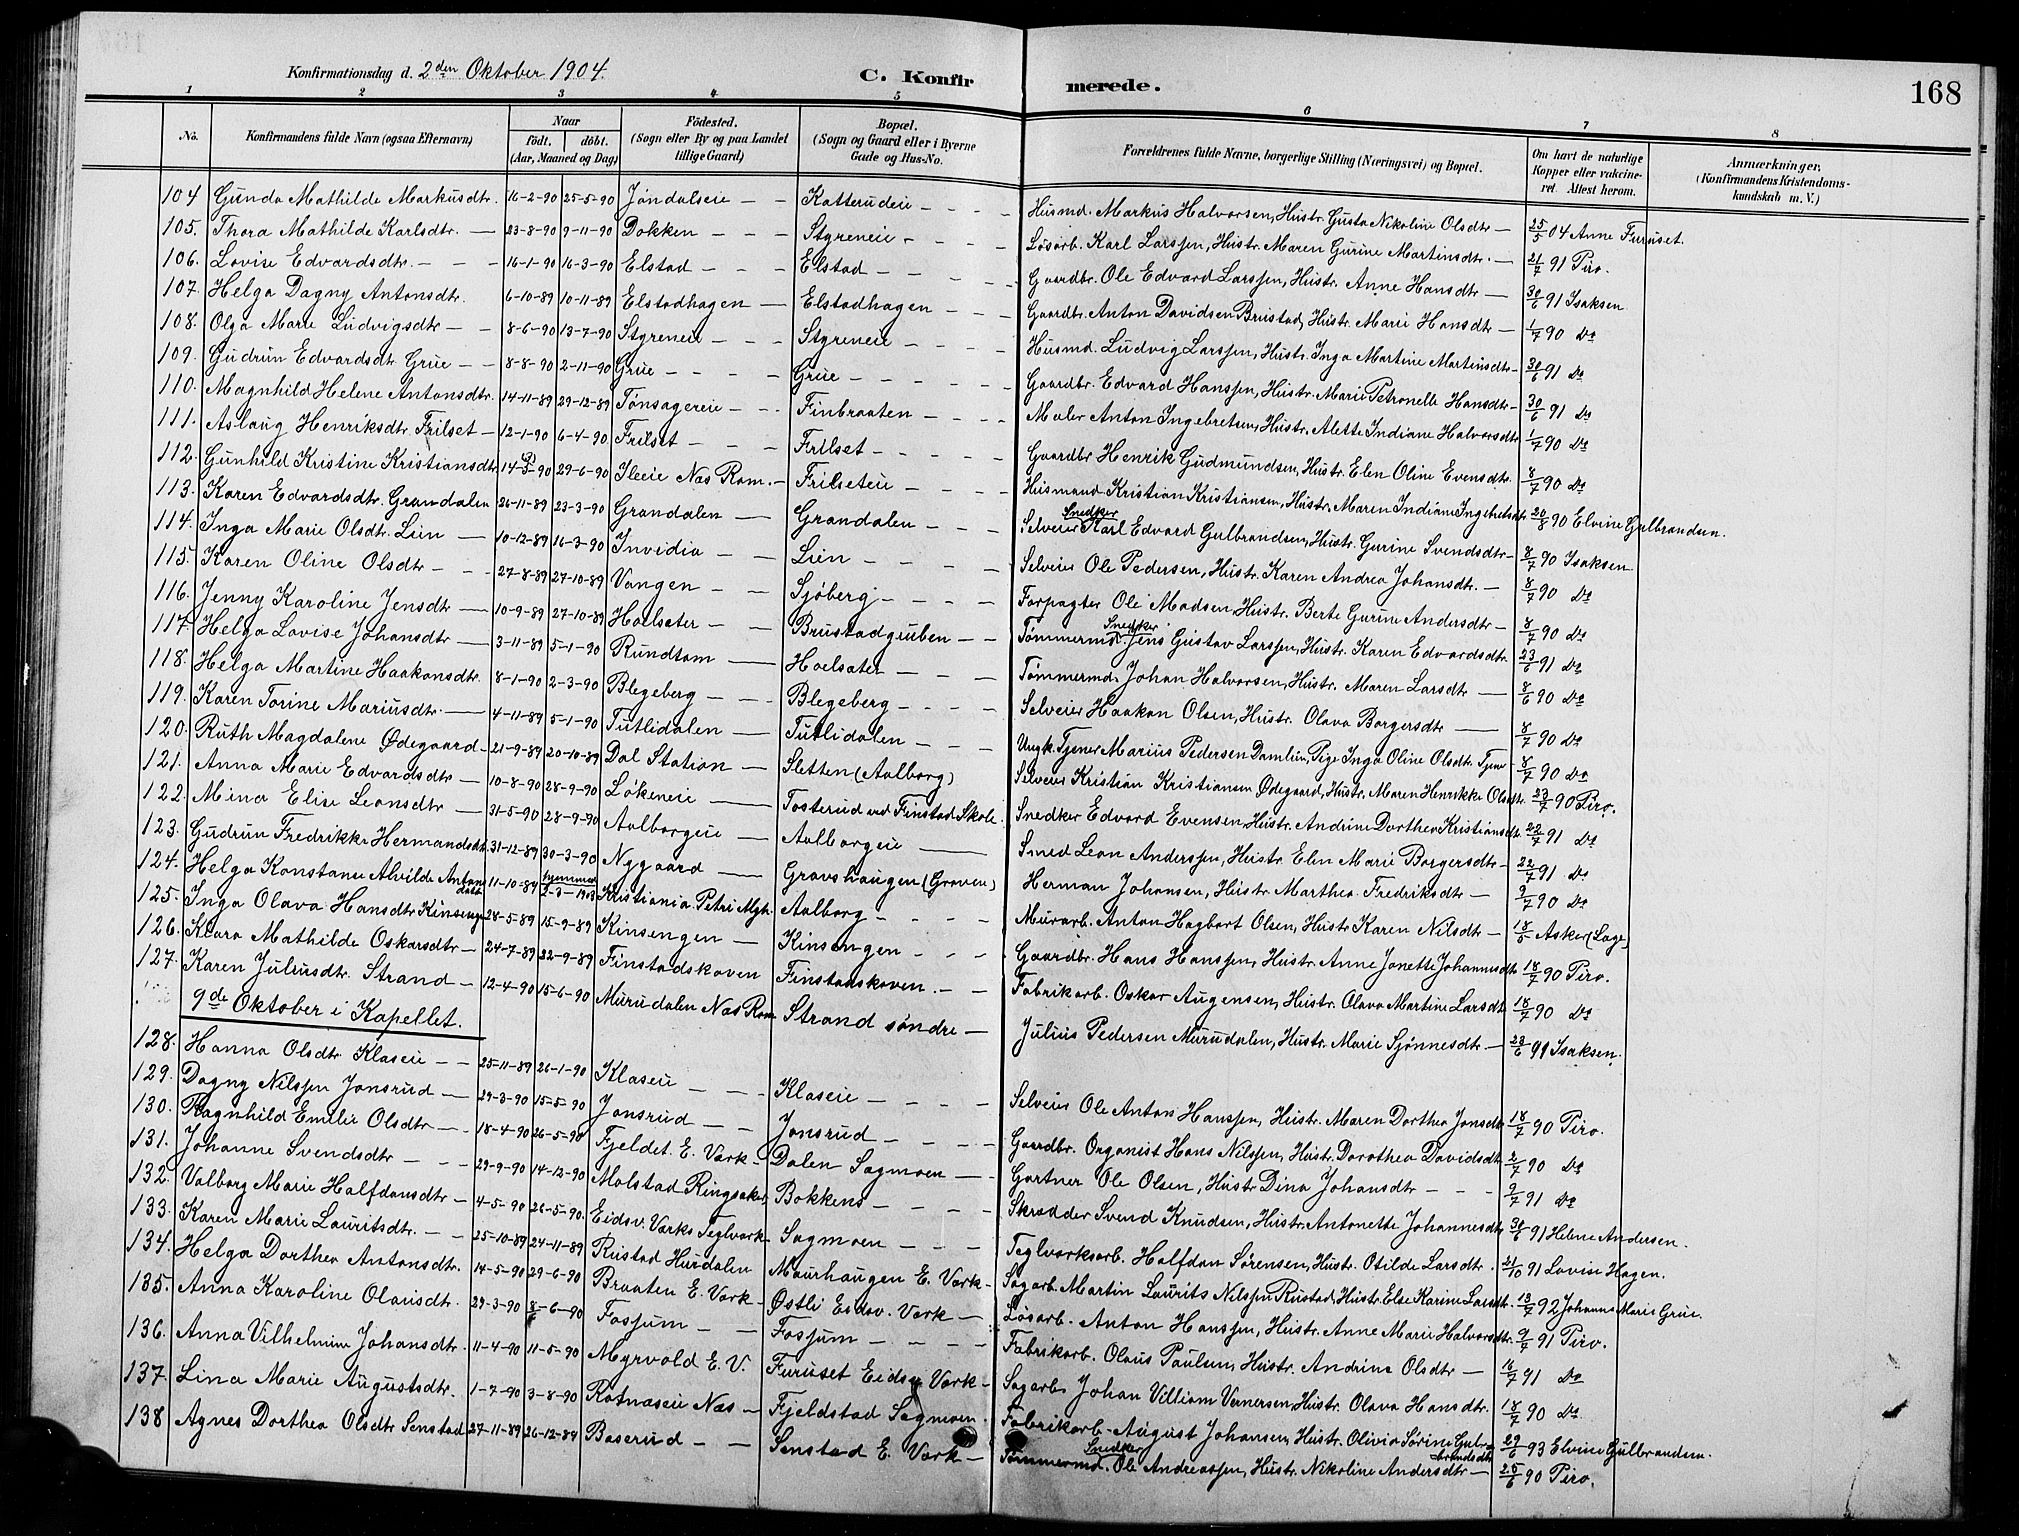 Konfirmationsdag d. 2den Oktober 1904. C. Konfirmerede. 168
1 2 3 4 5 6 7 8
No. Konfirmandens fulde Navn (ogsaa Efternavn) Naar født. døbt. (Aar, Maaned og Dag) Fødested. (Sogn eller By og paa Landet tillige Gaard) Bopæl. (Sogn og Gaard eller i Byerne Gade og Hus-No. Forældrenes fulde Navne, borgerlige Stilling (Næringsvei) og Bopæl. Om havt de naturlige Kopper eller vakcineret. Attest herom. Anmærkninger, (Konfirmandens Kristendomskundskab m. V.)
104 Gunda Mathilde Markusdtr. 16-2-90 25-5-90 Jøndalseie Katterudeie Husmd. Markus Halvorsen, Hustr. Gusta Nikoline Olsdtr 25/5 04 Anne Furuset.
105. Thora Mathilde Karlsdtr. 23-8-90 9-11-90 Dokken Styreneie Løsarb. Karl Larssen, Hustr. Maren Gurine Martinsdtr. 21/7 91 Piro.
106. Lovise Edvardsdtr. 16-1-90 16-3-90 Elstad Elstad Gaardbr. Ole Edvard Larssen, Hustr. Anne Hansdtr 30/6 91 Isaksen
107. Helga Dagny Antonsdtr. 6-10-89 10-11-89 Elstadhagen Elstadhagen Gaardbr. Anton Davidsen Brustad, Hustr. Marie Hansdtr 1/7 90 Do
108. Olga Marie Ludvigsdtr 8-6-90 13-7-90 Styreneie Styreneie Husmd. Ludvig Larssen, Hustr. Inga Martine Martinsdtr 30/6 91 Do
109. Gudrun Edvardsdtr Grue 8-8-90 2-11-90 Grue Grue Gaardbr. Edvard Hanssen, Hustr. Marie Petronelle Hansdtr 30/6 91 Do
110. Magnhild Helene Antonsdtr. 14-11-89 29-12-89 Tønsagereie Finbraaten Maler Anton Ingebretsen, Hustr. Alette Indiane Halvorsdtr 1/7 90 Do
111. Aslaug Henriksdtr Frilset 12-1-90 6-4-90 Frilset Frilset Gaardbr Henrik Gudmundsen, Hustr. Elen Oline Evensdtr. 8/7 90 Do
112. Gunhild Kristine Kristiansdtr 29-6-90 Ileie Næs Rom. Frilseteie Husmand Kristian Kristiansen, Hustr. Maren Indiane Ingebretsdtr 20/8 90 Elvine Gulbrandsen.
113. Karen Edvardsdtr. Grandalen 26-11-89 23-3-90 Grandalen Grandalen Selveier Snedker Karl Edvard Gulbrandsen, Hustr. Gurine Svendsdtr 8/7 90 Isaksen
114. Inga Marie Olsdtr. Lien 10-12-89 16-3-90 Invidia Lien Selveier Ole Pedersen, Hustr. Karen Andrea Johansdtr. 8/7 90 Do
115. Karen Oline Olsdtr 27-8-89 27-10-89 Vangen Sjøberg Forpagter Ole Madsen, Hustr. Berte Gurine Andersdtr 8/7 90 Do
116. Jenny Karoline Jensdtr 10-9-89 27-10-89 Holsæter Brustadgruben Tømmermd. Snedker Jens Gustav Larssen, Hustr. Karen Edvardsdtr 23/6 91 Do
117. Helga Lovise Johansdtr 3-11-89 5-1-90 Rundtom Hoelsæter Tømmermd. Johan Halvorsen, Hustr. Maren Larsdtr 8/6 90 Do
118. Helga Martine Haakonsdtr. 8-1-90 2-3-90 Blegeberg Blegeberg Selveier Haakon Olsen, Hustr. Olava Borgersdtr 8/7 90 Do
119. Karen Torine Mariusdtr. 4-11-89 5-1-90 Tutlidalen Tutlidalen Ungk. Tjener Marius Pedersen Damlien, Pige Inga Oline Olsdtr. Tjener 8/7 90 Do
120. Ruth Magdalene Ødegaard 21-9-89 20-10-89 Dal Station Sletten (Aalborg) Selveier Kristian Kristiansen Ødegaard, Hustr. Maren Henrikke Olsdtr. 23/7 90 Piro.
121. Anna Marie Edvardsdtr 10-8-90 28-9-90 Løkeneie Tosterud ved Finstad Skole. Snedker Edvard Evensen, Hustr. Andrine Dorthea Kristiansdtr 22/7 91 Do
122. Mina Elise Leonsdtr 31-5-90 28-9-90 Aalborgeie Aalborgeie Smed Leon Anderssen, Hustr. Elen Marie Borgersdtr 22/7 91 Do
123. Gudrun Fredrikke Hermansdtr. 31-12-89 30-3-90 Nygaard Gravshaugen (Graven) Herman Johansen, Hustr. Marthea Fredriksdtr 9/7 90 Do
124. Helga Konstanse Alvilde Antonsdatter 11-10-89 hjemmed Kristiania Petri Mgh. Aalborg Murarb. Anton Hagbart Olsen, Hustr. Karen Nilsdtr 18/5 Asker (Læge)
125. Inga Olava Hansdtr Kinsengen 28-5-89 15-9-89 Kinsengen Kinsengen Gaardbr. Hans Hanssen, Hustr. Anne Jonette Johannesdtr 18/7 90 Piro.
126. Klara Mathilde Oskarsdtr 24-7-89 22-9-89 Finstadskoven Finstadskoven Fabrikarb. Oskar Augensen, Hustr. Olava Martine Larsdtr 18/7 90 Do
127. Karen Juliusdtr. Strand 12-4-90 15-6-90 Murudalen Næs Rom. Strand søndre Julius Pedersen Murudalen, Hustr. Marie Sjønnesdtr. 23/6 91 Isaksen.
9de Oktober i Kapellet.
128. Hanna Olsdtr Klaseie 25-11-89 26-1-90 Klaseie Klaseie Selveier Ole Anton Hanssen, Hustr. Maren Dorthea Jonsdtr 18/7 90 Piro.
129. Dagny Nilssen Jonsrud 29-3-90 15-5-90 Jonsrud Jonsrud Gaardbr. Organist Hans Nilssen, Hustr. Dorothea Davidsdtr 2/7 90 Do
130. Ragnhild Emilie Olsdtr 18-4-90 26-5-90 Fjeldet E. Værk Dalen Sagmoen Gartner Ole Olsen, Hustr Dina Johansdtr 9/7 91 Do
131. Johanne Svendsdtr 29-9-90 14-12-90 Molstad Ringsaker Bakkens Skrædder Svend Knudsen, Hustr. Antonette Johannesdtr 30/6 91 Helene Andersen.
132. Valborg Marie Halfdansdtr 4-5-90 26-5-90. Eidsv. Værks Teglværk Sagmoen Teglværksarb. Halfdan Sørensen, Hustr. Otilde Larsdtr. 21/10 91 Lovise Hagen.
133. Karen Marie Lauritsdtr. 25-10-89 24-11-89 Rustad Hurdalen Maurhaugen E. Værk Sagarb. Martin Laurits Nilssen Rustad, Hustr. Else Karine Larsdtr. 13/7 92 Johanne Marie Grue.
134. Helga Dorthea Antonsdtr. 14-5-90 29-6-90 Braaten E. Værk Østli Eidsv. Værk Løsarb. Anton Hanssen, Hustr. Anne Marie Halvorsdtr. 9/7 91 Piro.
135. Anna Karoline Olausdtr. 29-3-90 8-6-90 Fossum Fossum Fabrikarb. Olaus Paulsen, Hustr. Andrine Olsdtr 16/7 91 Do
136. Anna Vilhelmine Johansdtr. 11-4-90 11-5-90 Myrvold E. V. Furuset Eidsv Værk Sagarb. Johan Villiam Vernersen, Hustr. Olava Hansdtr. 18/7 90 Do
137. Lina Marie Augustsdtr. 1-7-90 3-8-90 Ratnæseie Næs Fjeldstad Sagmoen. Fabrikarb. August Johansen, Hustr. Olivia Sørine Gulbrandsdtr 29/6 93 Elvine Gulbrandsen.
138 Agnes Dorthea Olsdtr Senstad 27-11-89 26-12-89 Baserud Senstad E. Værk Tømmermd. Snedker Ole Andreassen, Hustr. Nikoline Andersdtr 25/6 90 Piro.